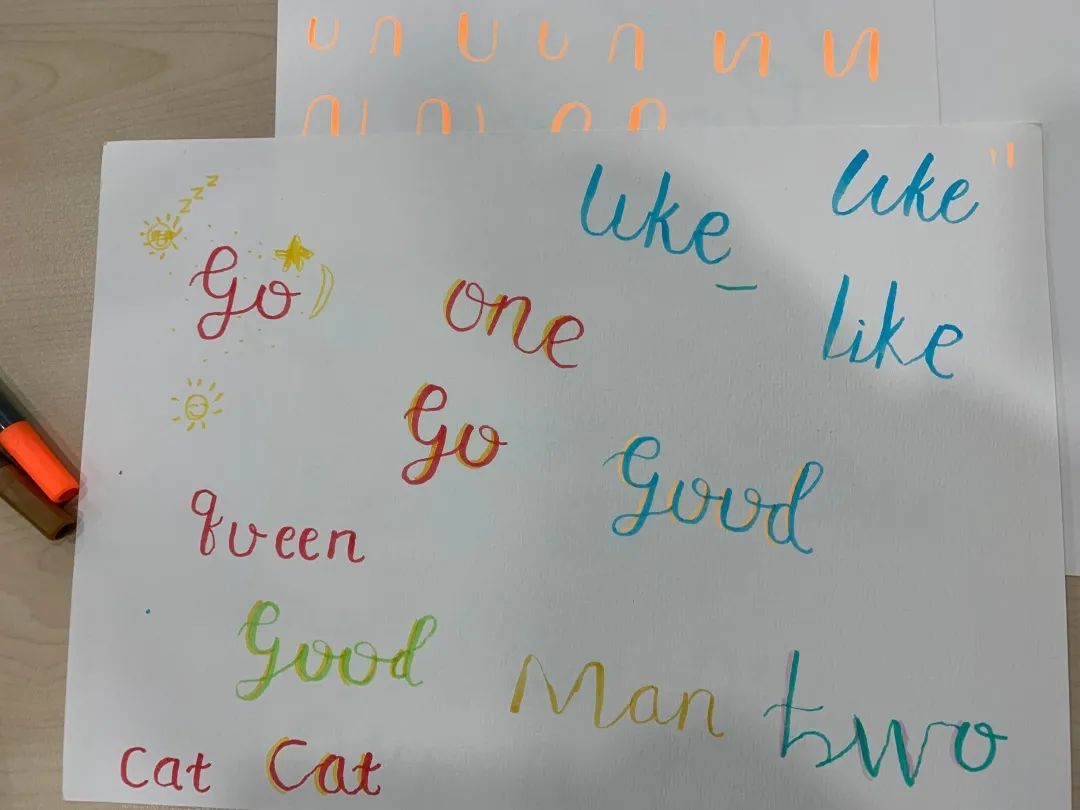 u n u u n u u
n n n n
zzz
like like
Go one like
Go Good
queen
Good Man two
Cat Cat